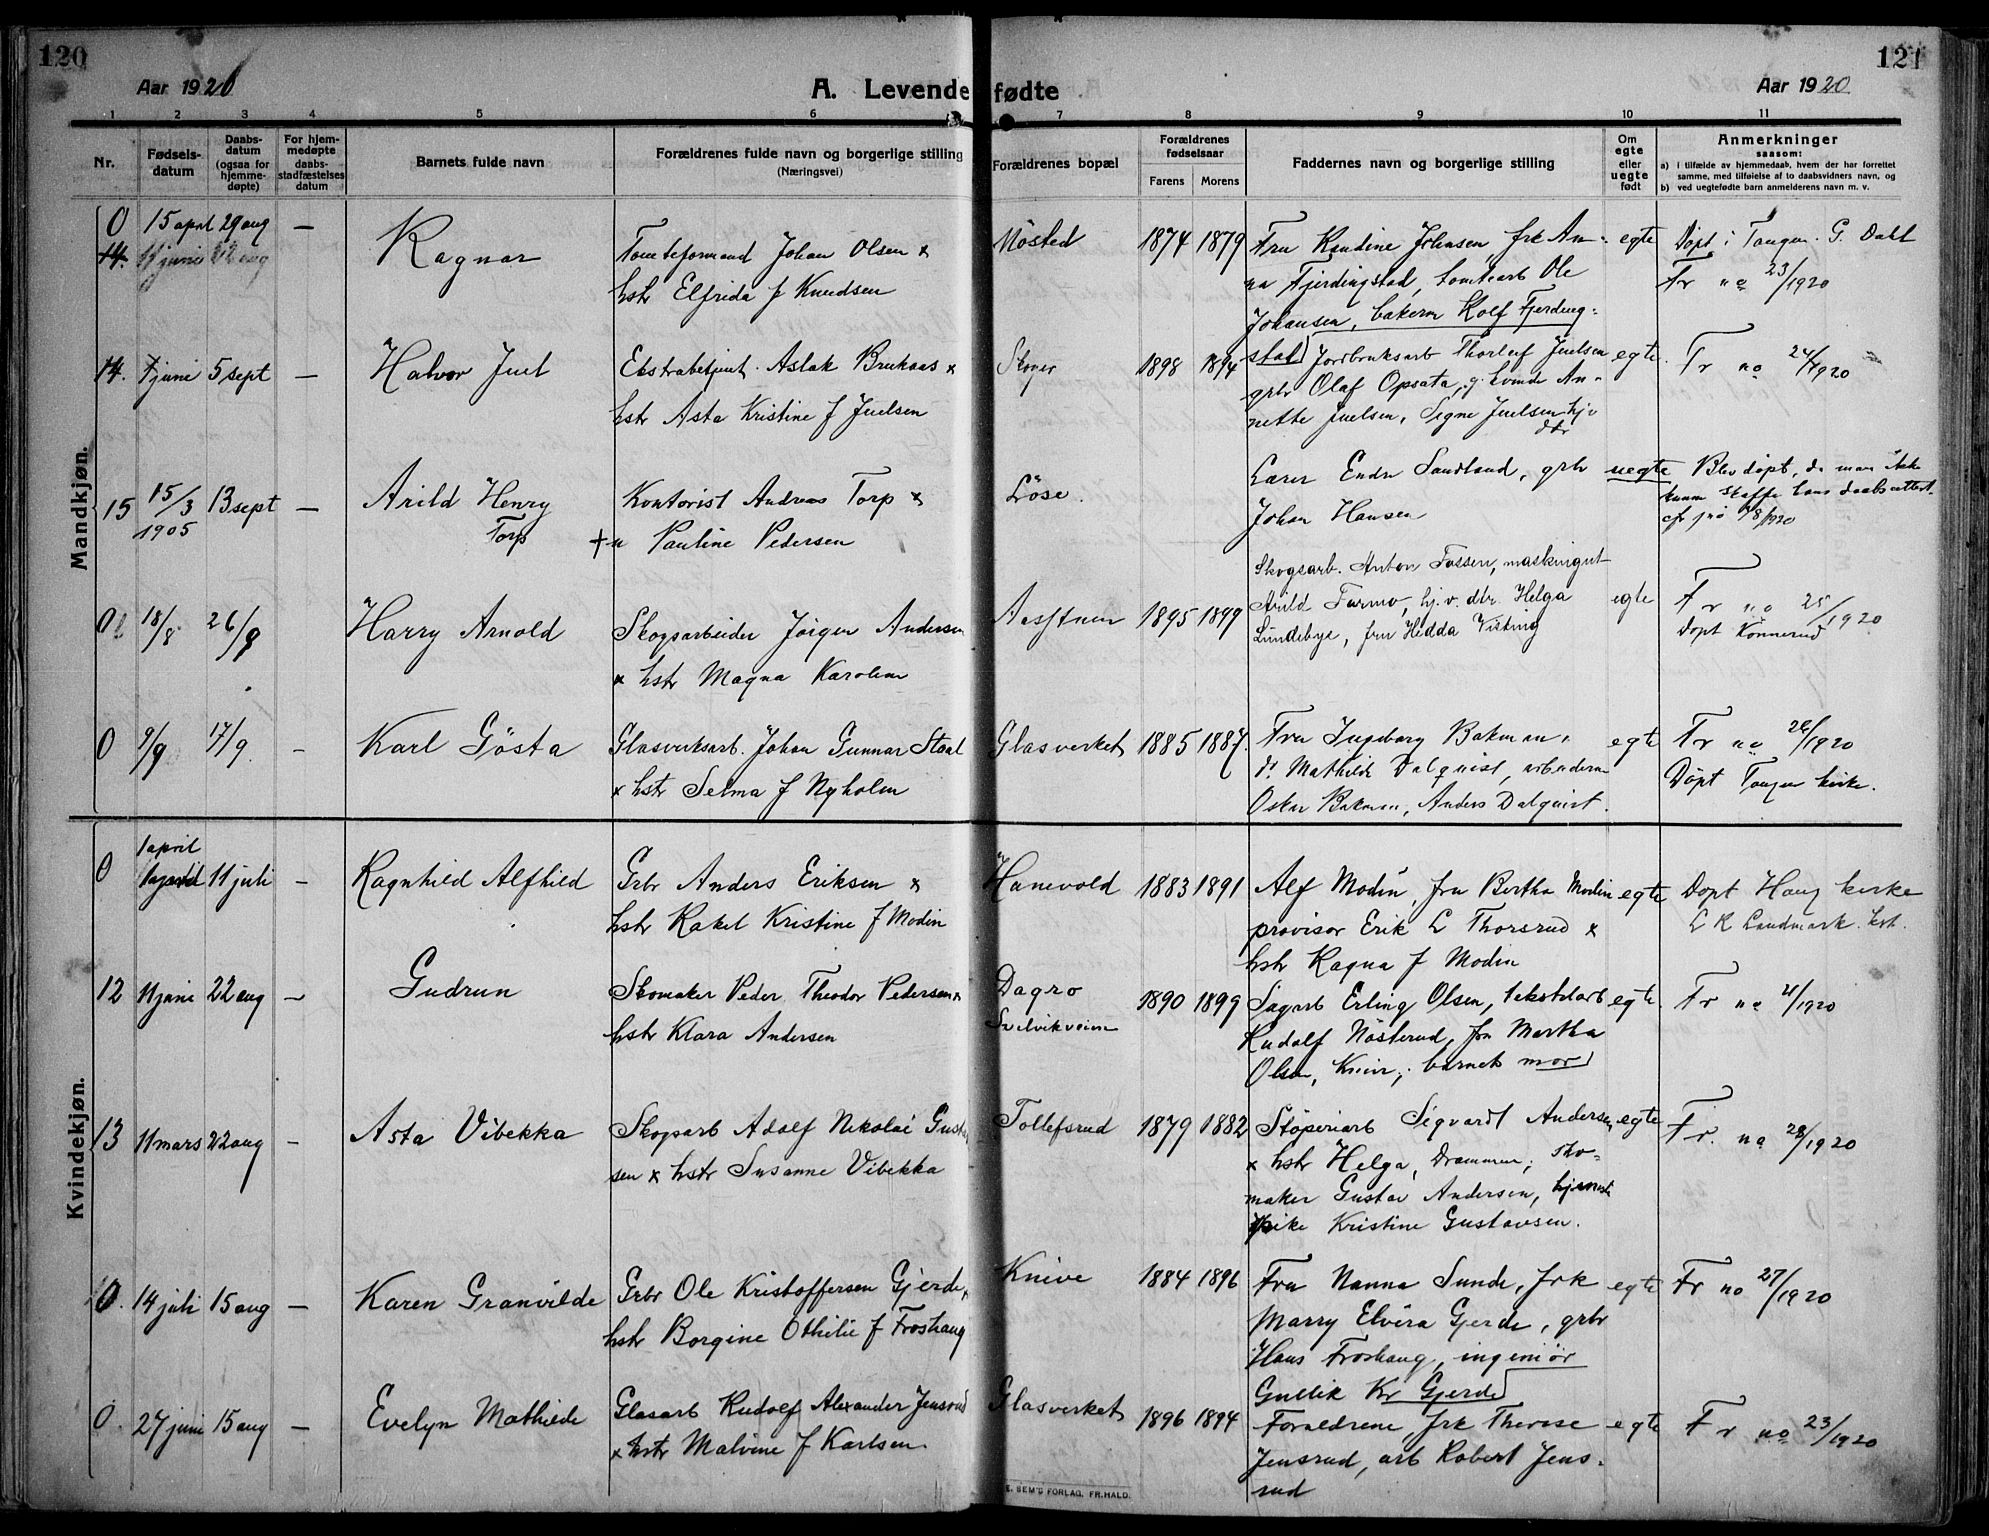 120
Aar 1920
A. Levende fødte
Aar 1920
121
1 2 3 4 5 6 7 8 9 10 11
Nr.
Fødsels-
datum
Daabs-
datum
(ogsaa for
hjemme-
døpte)
For hjem-
medøpte
daabs-
stadfæstelses
datum
Barnets fulde navn
Forældrenes fulde navn og borgerlige stilling
(Næringsvei)
Forældrenes bopæl
Forældrenes
fødselsaar
Farens Morens
Faddernes navn og borgerlige stilling
Om
egte
eller
uegte
født
Anmerkninger
saasom:
a) i tilfælde av hjemmedaab, hvem der har forrettet
samme, med tilføielse af to daabsvidners navn, og
b) ved uegtefødte barn anmelderens navn m. v.
Mandkjøn.
0 15 april 29 aug —
14. 11 juni 22 aug
Ragnar
Tomteformand Johan Olsen x
hstr Elfrida f Knudsen
Nøsted
1874 1879
Fru Randine Johnsen, frk An-
na Fjerdingstad, tomtearb Ole
Johansen, bakerm Rolf Fjerding-
stad
egte
Døpt i Tangen. G. Dahl
Fr no 23/1920
14. 7 juni 5 sept —
Halvor Juel
Ekstrabetjent. Aslak Brukaas x
hstr Asta Kristine f Juelsen
Skoger
1898 1894
Jordbruksarb Thorleif Juelsen
grbr Olaf Opsata, g. kvinde An-
nette Juelsen, Signe Juelsen hjv
dtr
egte.
Fr no 24/1920
15 15/3 1905 13 sept —
Arild Henry
Torp
Kontorist Andreas Torp x
+ u Pauline Pedersen
Løse.
Lærer Endre Sandland, grbr
Johan Hansen
uegte
Blev døpt, da man ikke
kunne skaffe hans daabsattest.
0 18/8 26/9
Harry Arnold
Skogsarbeider Jørgen Andersen
x hstr Magna Karoline
1895 1899
Skogsarb. Anton Fossen, maskingut
Arild Furmo, hj.v. dtr. Helga
Lundebye, fru Hedda Visting
egte
Fr no 25/1920
Døpt Konnerud
0 9/9 17/9 -
Karl Gøsta
Glasverksarb. Johan Gunnar Staal
x hstr Selma f Nyholm
Glasverket
1885 1887.
Fru Ingeborg Bakman,
dr. Mathilde Dalquist, arbeiderne
Oskar Bakman, Anders Dalquist.
egte
Fr no 26/1920
Døpt Tangen kirke.
Kvindekjøn.
0 1 april 11 juli -
Ragnhild Alfhild
Grbr Anders Eriksen x
hstr Rakel Kristine f Modin
Hanevold
1883 1891
Alf Modin, fru Bertha Modin
provisor Erik L Thorsrud x
hstr Ragna f Modin
egte
Døpt Haug kirke
L K Landmark. kst.
12 11 juni 22 aug —
Gudrun
Skomaker Peder Theodor Pedersen x
hstr Klara Andersen
Dagro
Svelvikveien
1890 1899
Sagarb Erling Olsen, tekstilarb
Rudolf Nøsterud, fru Martha
Olsen, Kniv; barnets mor
egte.
Fr no 21/1920
13 11 mars 22 aug -
Asta Vibekka
Skogsarb Adolf Nikolai Gustav
sen x hstr Susanne Vibekka
Tollefsrud
1879 1882
Støperiarb Sigvardt Andersen
x hstr Helga, Drammen; sko-
maker Gustav Andersen, hjemst
pike Kristine Gustavsen.
egte
Fr. no 28/1920
0. 14 juli 15 aug —
Karen Granvilde
Grbr Ole Kristoffersen Gjerde x
hstr Borgine Othilie f Froshaug
Knive
1884 1896
Fru Nanna Sunde, frk
Marry Elvira Gjerde, grbr
Hans Froshaug, ingeniør
Gullik Kr Gjerde
egte
Fr no 27/1920
0. 27 juni 15 aug —
Evelyn Mathilde
Glasarb Rudolf Alexander Jensrud
x hstr Malvine f Karlsen
Glasverket
1896 1894
Forældrene, frk Therese
Jensrud, arb Robert Jens-
rud
egte
Fr no 23/1920
E. SEM'S FORLAG, FR.HALD.